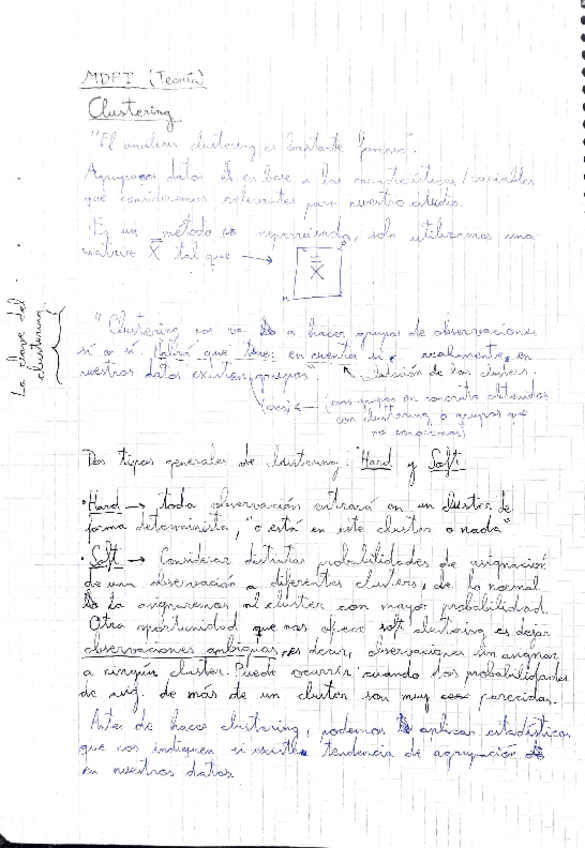 MDPI (Teoría)
Clustering
"El análisis clustering es bastante famoso".
Agrupamos datos en base a las características/variables
que consideremos relevantes para nuestro estudio.
Es un método no supervisado, solo utilizamos una
matriz X tal que →
X
n
La clave del
clustering
"Clustering nos va a hacer grupos de observaciones
sí o sí. Habrá que tener en cuenta si realmente en
nuestros datos existen grupos".
de los clusters.
(esos grupos en concreto obtenidos
con clustering o grupos que
no conocemos)
Dos tipos generales de clustering: Hard y Soft
• Hard → toda observación entrará en un cluster de
forma determinista, "o está en este cluster o nada"
• Soft → Considerar distintas probabilidades de asignación
de una observación a diferentes clusters, de lo normal
la asignaremos al cluster con mayor probabilidad.
Otra oportunidad que nos ofrece soft clustering es dejar
observaciones ambiguas, es decir, observaciones sin asignar
a ningún cluster. Puede ocurrir cuando las probabilidades
de asig. de más de un cluster son muy parecidas.
Antes de hacer clustering, podemos aplicar estadísticos
que nos indiquen si existe tendencia de agrupación
en nuestros datos.